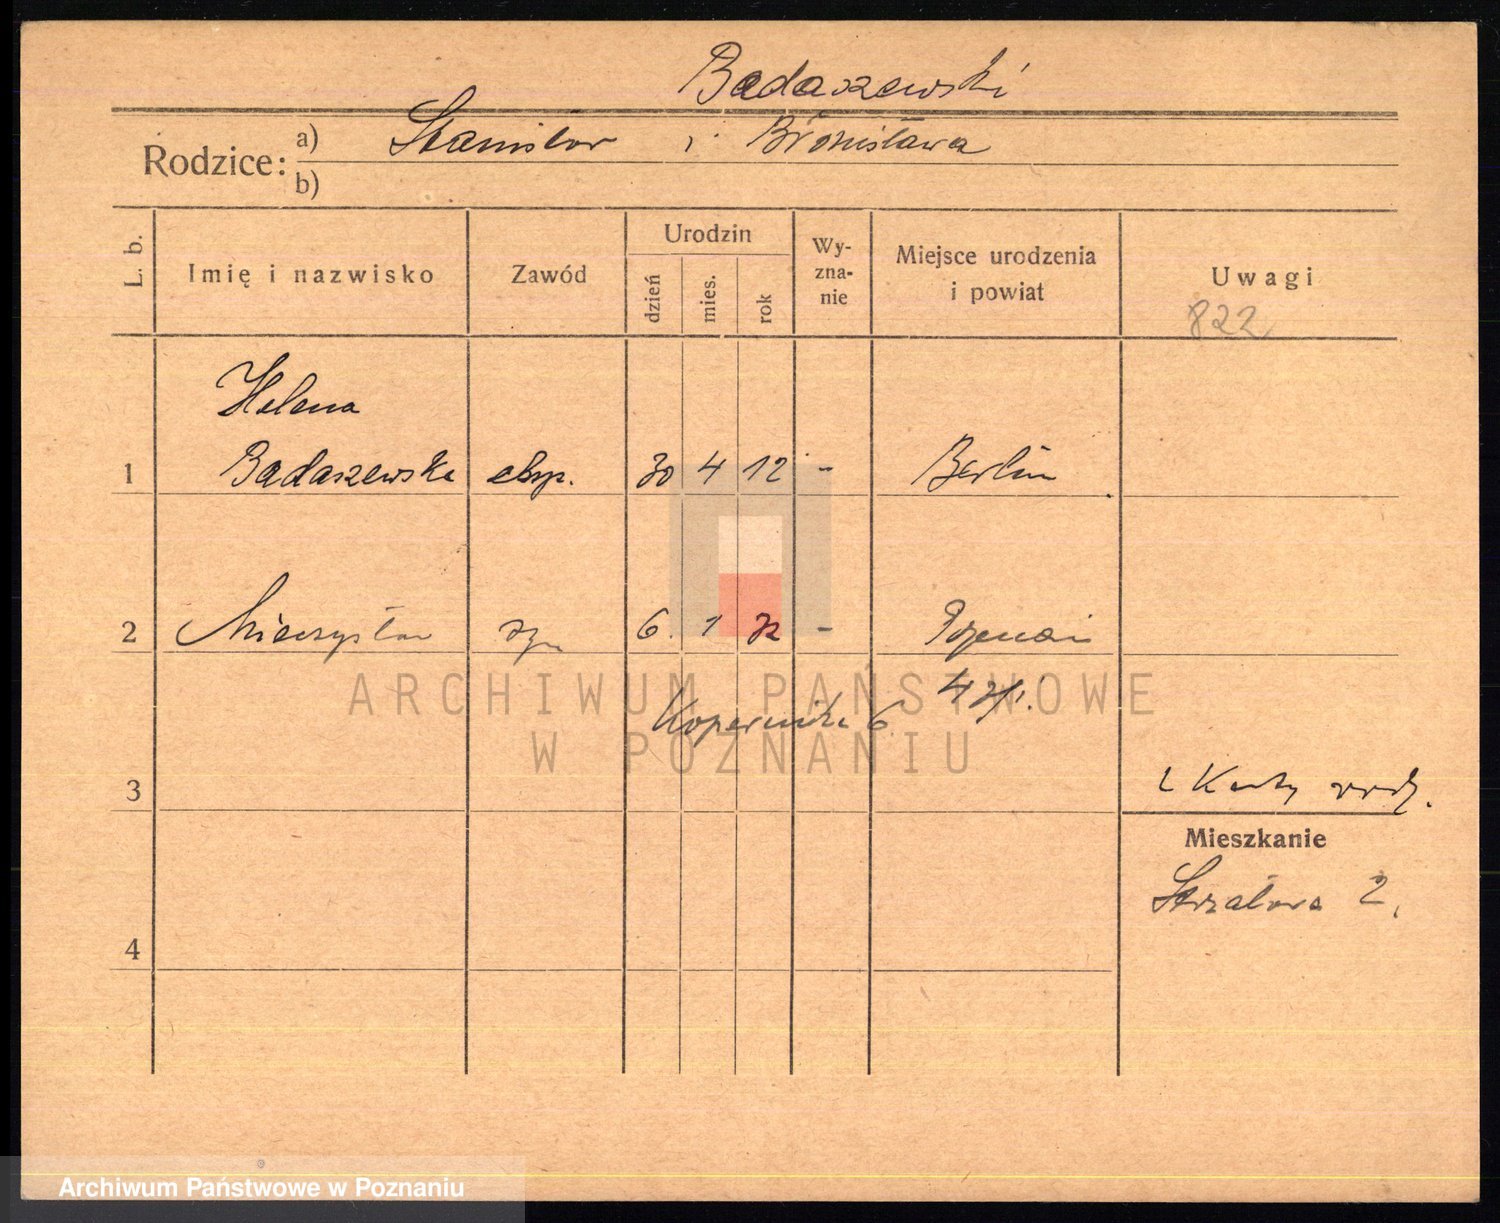 Badaszewski
Rodzice: a) Stanisław i Bronisława
b)
L. b.
Imię i nazwisko
Zawód
Urodzin
dzień
mies.
rok
Wy-
zna-
nie
Miejsce urodzenia
i powiat
Uwagi
822
Helena
1 Badaszewska eksp. 30 4 12 - Berlin
2 Mieczysław syn 6. 1 32 - Poznań
ARCHIWUM PAŃSTWOWE
Kopernika 6
W POZNANIU
3
Mieszkanie
Strzałowa 2,
4
Archiwum Państwowe w Poznaniu